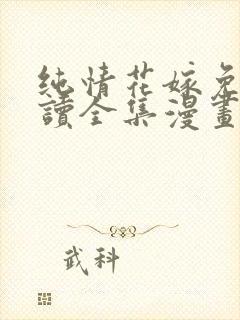 純情花嫁免
讀全集漫畫
武科